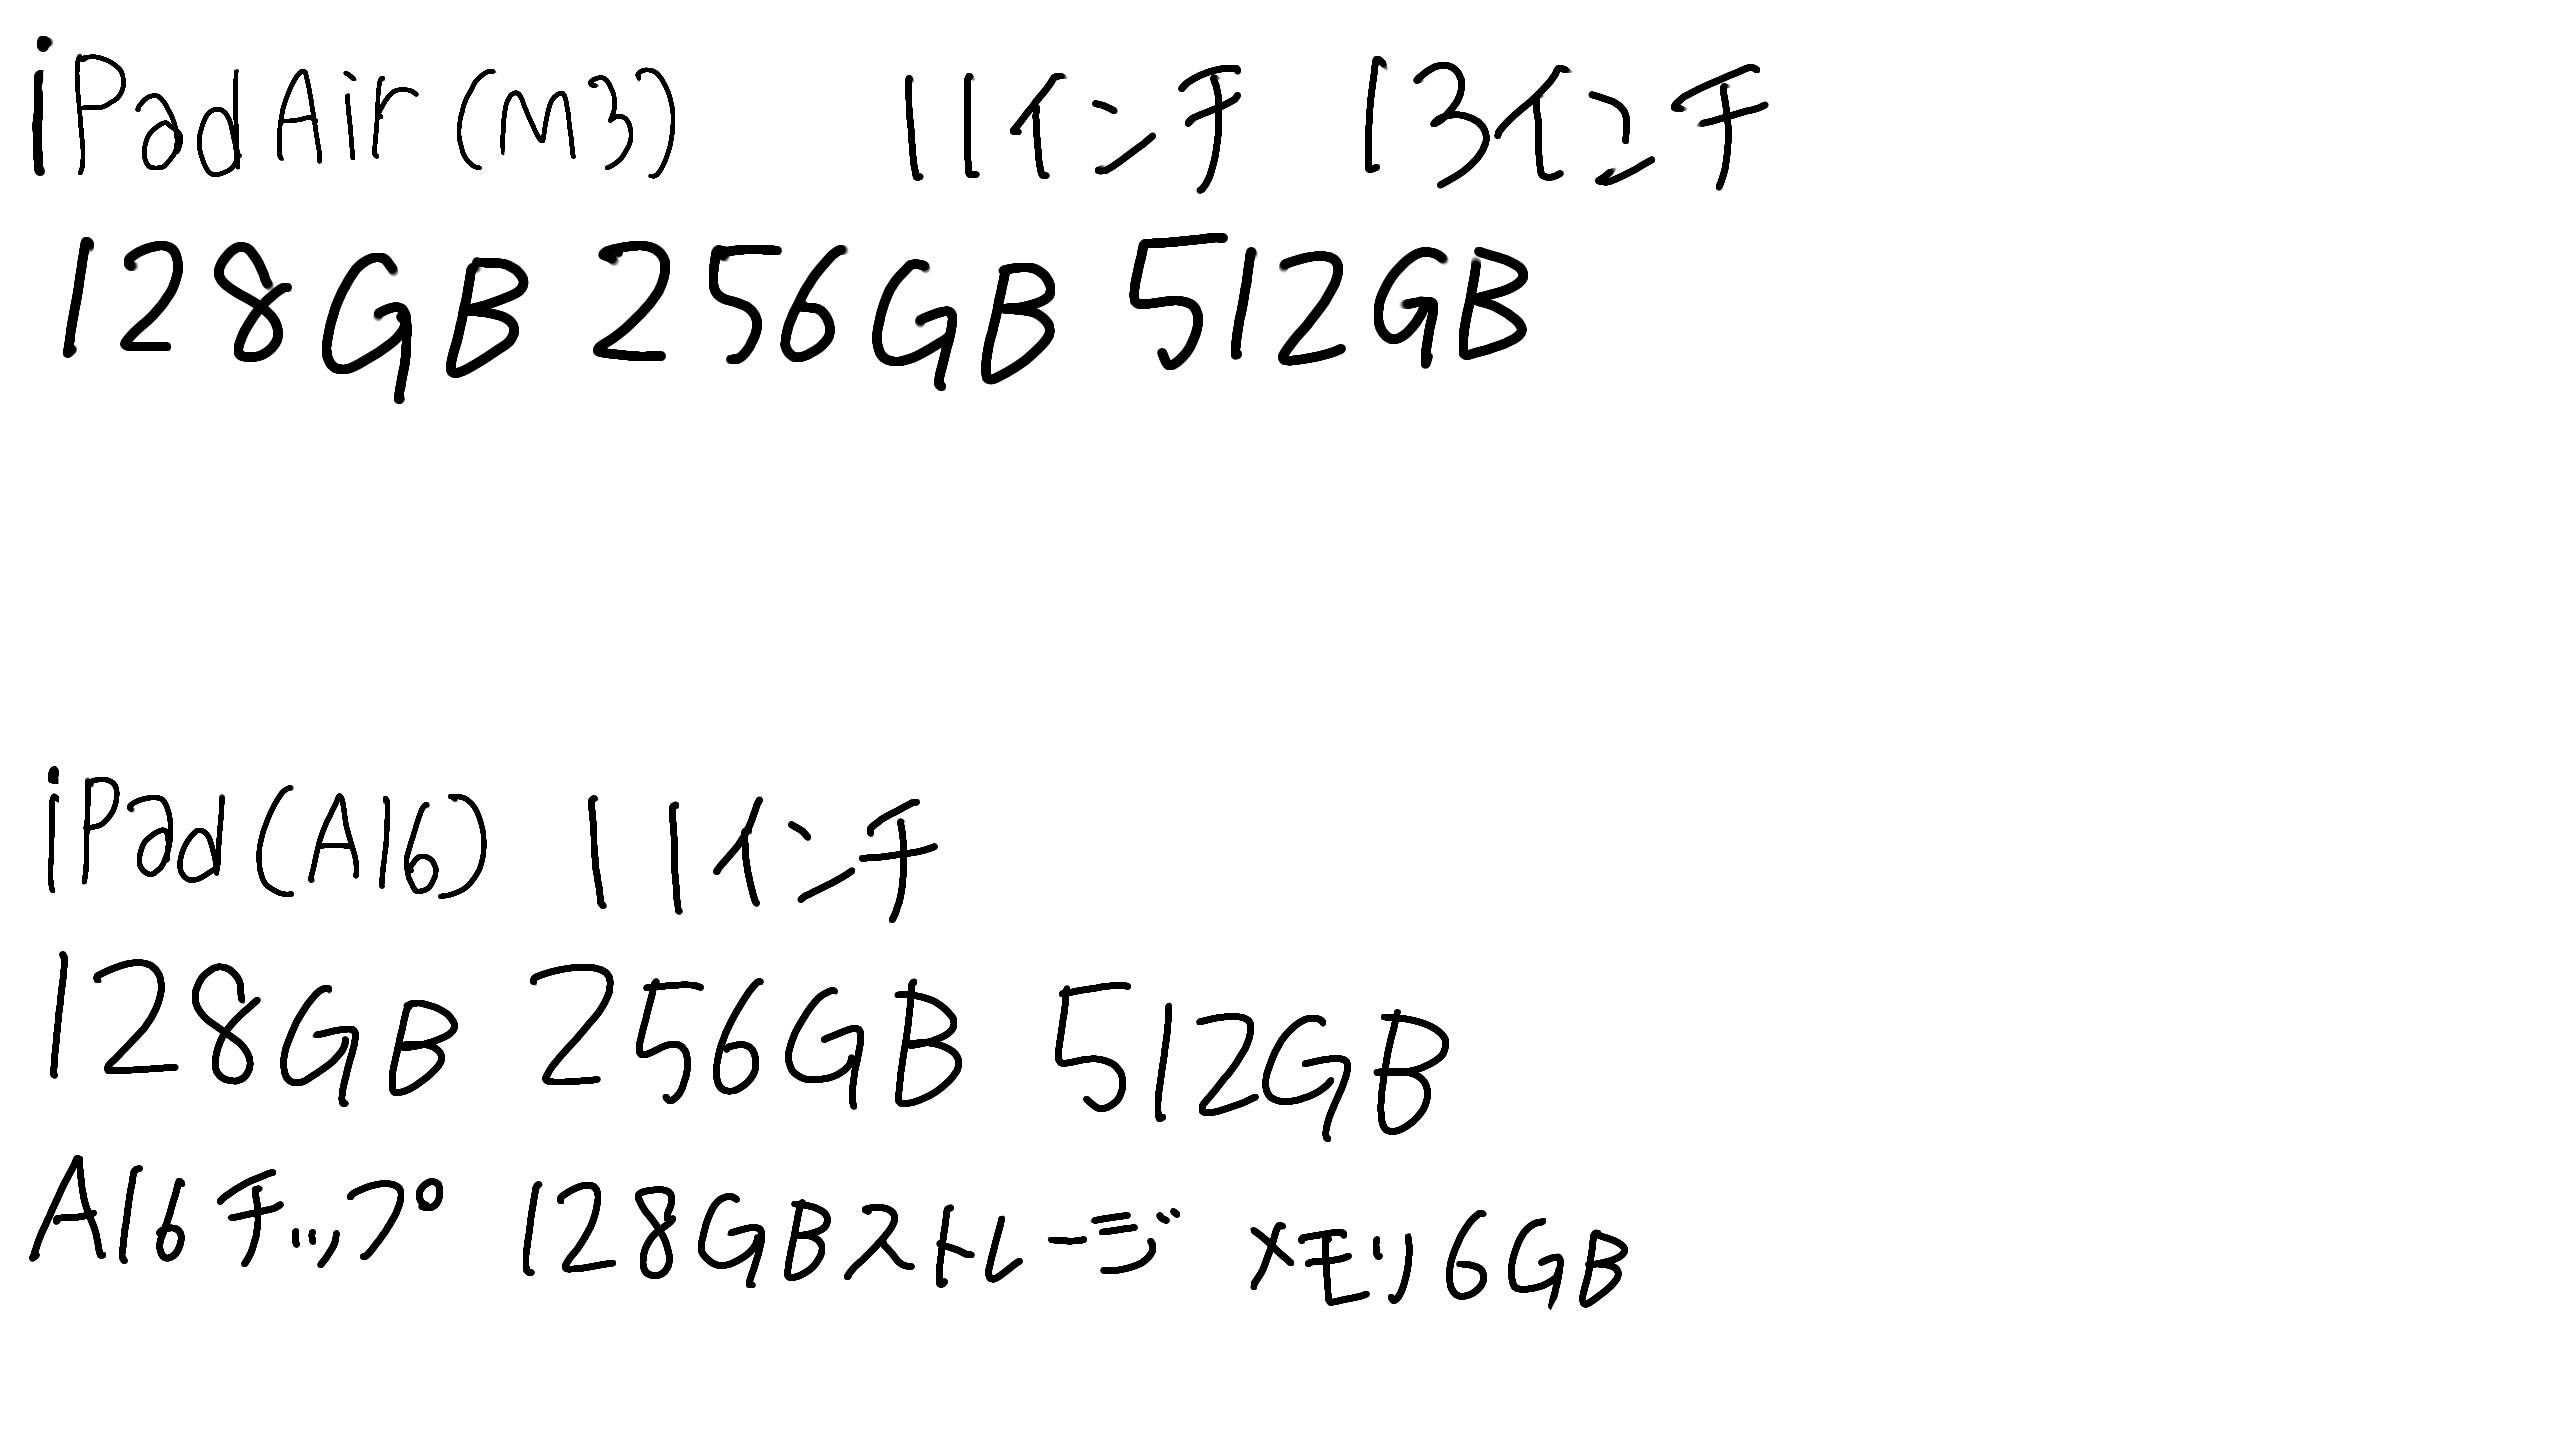 iPadAir(M3) 11インチ 13インチ
128GB 256GB 512GB
iPad(A16) 11インチ
128GB 256GB 512GB
A16チップ 128GBストレージ メモリ6GB